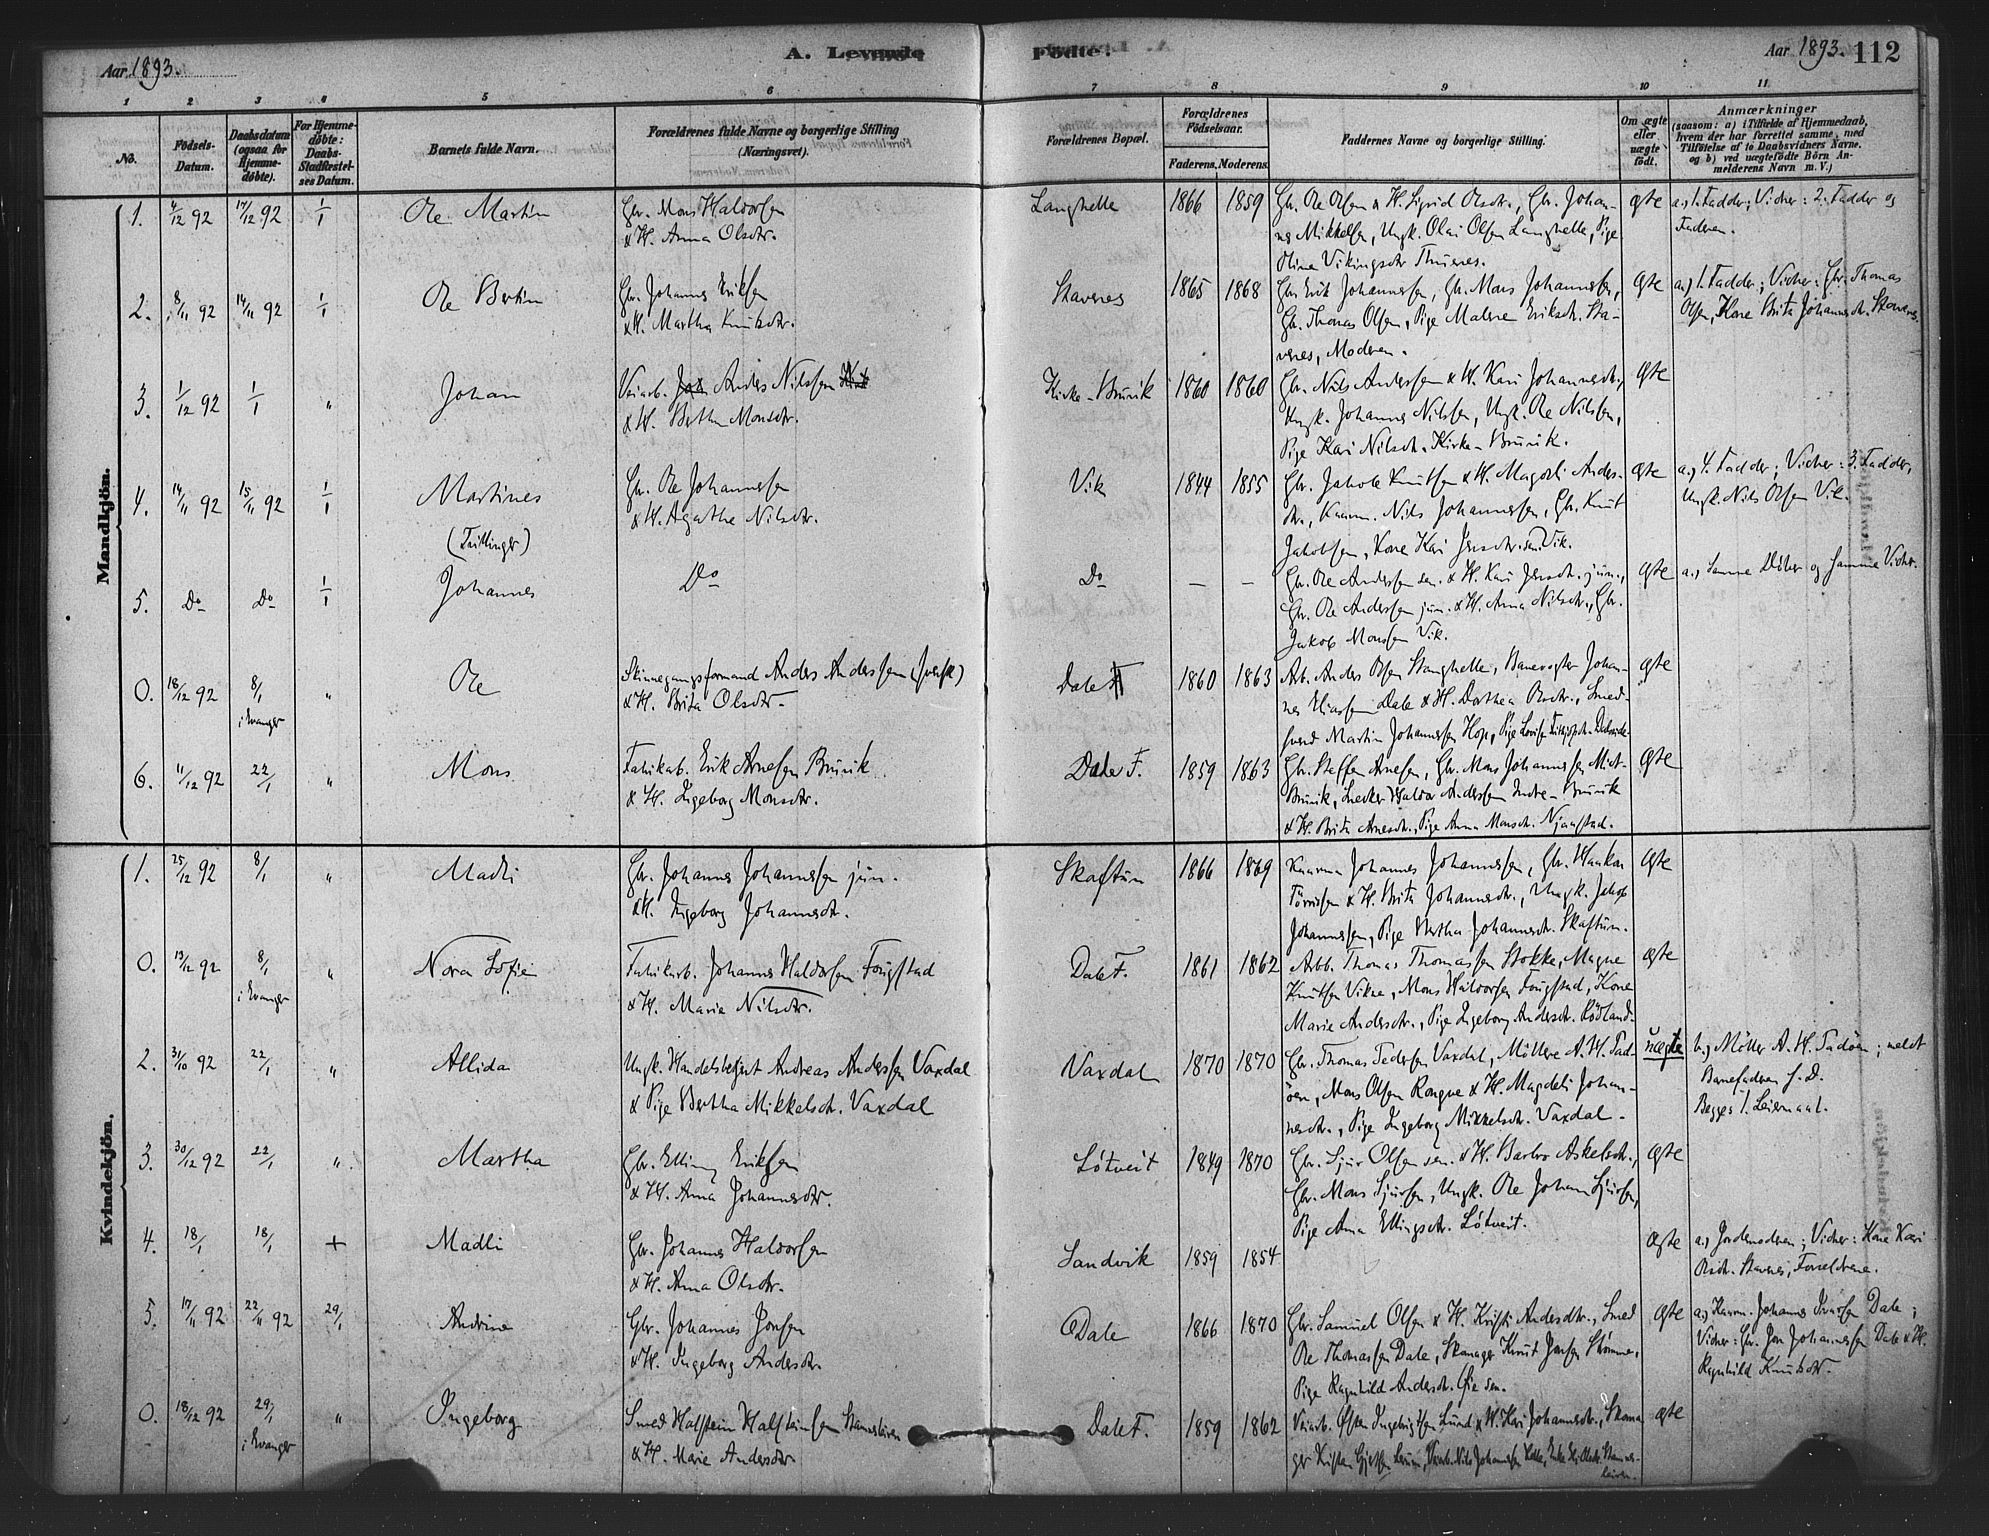 Aar 1893.
A. Levende
Fødte.
Aar 1893. 112
1 2 3 4 5 6 7 8 9 10 11
No.
Fødsels-Datum.
Daabsdatum (ogsaa for Hjemmedøbte).
For Hjemmedøbte: Daabs-Stadfæstelses Datum.
Barnets fulde Navn.
Forældrenes fulde Navne og borgerlige Stilling (Næringsvei).
Forældrenes Bopæl.
Forældrenes Fødselsaar.
Faderens. Moderens.
Faddernes Navne og borgerlige Stilling.
Om ægte eller uægte født.
Anmærkninger
(saasom: a) i Tilfælde af Hjemmedaab, hvem der har forrettet samme, med Tilføielse af to Daabsvidners Navne, og b) ved uægtefødte Børn Anmelderens Navn m. V.)
Mandkjön.
1. 4/12 92 17/12 92 1/1 Ole Martin
Gbr. Mons Haldorsen
& H. Anna Olsdtr.
Langhelle 1866 1859
Gbr. Ole Olsen & H. Sigrid Olsdtr., Gbr. Johan-
nes Mikkelsen, Ungk. Olai Olsen Langhelle, Pige
Oline Vikingsdtr Thunes.
ægte
a.) 1. Fadder; Vidner: 2. Fadder og
Faderen.
2. 8/11 92 14/11 92 1/1 Ole Bertin
Gbr. Johannes Eriksen
& H. Martha Knutsdtr.
Stavenes 1865 1868
Gbr. Erik Johannessen, Gbr. Mons Johannessen,
Gbr. Thomas Olsen, Pige Malene Eriksdtr. Sta-
venes, Moderen.
ægte
a.) 1. Fadder; Vidner: Gbr. Thomas
Olsen, Kone Brita Johannesdtr. Stavenes.
3. 1/12 92 1/1 " Johan
Veiarb. Anders Nilssen
& H. Bertha Monsdtr.
Kirke-Bruvik 1860 1860
Gbr. Nils Anderssen & H. Kari Johannesdtr.,
Ungk. Johannes Nilssen, Ungk. Ole Nilssen,
Pige Kari Nilsdtr. Kirke-Bruvik.
ægte
4. 14/11 92 15/11 92 1/1 Martines
(Tvillinger)
Gbr. Ole Johannessen
& H. Agathe Nilsdtr.
Vik 1844 1855
Gbr. Jakob Knutsen & H. Magdli Anders-
dtr., Kaarm. Nils Johannessen, Gbr. Knut
Jakobsen, Kone Kari Jensdtr. sen. Vik.
ægte
a.) 4. Fadder; Vidner: 3. Fadder,
Ungk. Nils Olsen Vik.
5. Do Do 1/1 Johannes
Do
Do – –
Gbr. Ole Anderssen sen. & H. Kari Jensdtr. jun.,
Gbr. Ole Anderssen jun. & H. Anna Nilsdtr., Gbr.
Jakob Monssen Vik.
ægte
a.) Samme Døber og samme Vidner.
0. 18/12 92 8/1 i Evanger " Ole
Skinnegangsformand Anders Anderssen
& H. Brita Olsdtr.
Dale F. 1860 1863
Arb. Anders Olsen Stanghelle, Banevogter Johan-
nes Eliassen Dale & H. Dorthea Olsdtr., Smed-
svend Martin Johannessen Hop, Pige Lovise
ægte
6. 11/12 92 22/1 " Mons
Fabrikarb. Erik Arnesen Bruvik
& H. Ingeborg Monsdtr.
Dale F. 1859 1863
Gbr. Steffen Arnesen, Gbr. Mons Johannessen Midt-
Bruvik, Snedker Haldor Anderssen Indre-Bruvik
& H. Brita Arnesdtr., Pige Anna Monsdtr. Njaastad.
ægte
Kvindekjön.
1. 25/12 92 8/1 " Madli
Gbr. Johannes Johannessen jun.
& H. Ingeborg Johannesdtr.
Skaftun 1866 1869
Kaarm. Johannes Johannessen, Gbr. Haakon
& H. Brita Johannesdtr., Ungk. Jakob
Johannessen, Pige Bertha Johannesdtr. Skaftun.
ægte
0. 13/12 92 8/1 i Evanger " Nora Sofie
Fabrikarb. Johannes Haldorsen Fougstad
& H. Marie Nilsdtr.
Dale F. 1861 1862
Arbb. Thomas Thomassen Stokke, Magne
Knutsen Vikne, Mons Haldorsen Fougstad, Kone
Marie Andersdtr., Pige Ingeborg Andersdtr. Rödland.
ægte
2. 31/10 92 22/1 " Allida
Ungk. Handelsbetjent Andreas Anderssen Vaxdal
& Pige Bertha Mikkelsdtr. Vaxdal
Vaxdal 1870 1870
Gbr. Thomas Vaxdal, Möllere A. H. Fad-
öen, Mons Olsen Rongve & H. Magdeli Johan-
nesdtr., Pige Ingeborg Mikkelsdtr. Vaxdal.
uægte
b.) Möller A. H. Fadöen; meldt
Barnefaderen s. D.
Begges 1. Leiermaal.
3. 30/12 92 22/1 " Martha
Gbr. Elling Eriksen
& H. Anna Johannesdtr.
Løtveit 1849 1870
Gbr. Sjur Olsen sen. & H. Barbro Askelsdtr.,
Gbr. Mons Sjursen, Ungk. Ole Johan Sjursen,
Pige Anna Ellingsdtr. Løtveit.
ægte
4. 18/1 18/1 + Madli
Gbr. Johannes Haldorsen
& H. Anna Olsdtr.
Sandvik 1859 1854
ægte
a.) Jordemoderen; Vidner: Kone Kari
Olsdtr. Stavenes, Forældrene.
5. 17/11 92 22/11 92 29/1 Andrine
Gbr. Johannes Jonsen
& H. Ingeborg Andersdtr.
Dale 1866 1870
Gbr. Samuel Olsen & H. Kristi Andersdtr., Smed
Ole Thomassen Dale, Skomager Knut Jensen Strømme,
Pige Ragnhild Andersdtr. Øie sen.
ægte
a.) Kaarm. Johannes Ivarsen Dale;
Vidner: Gbr. Jon Johannessen Dale & H.
Ragnhild Knutsdtr.
0. 18/12 92 29/1 i Evanger " Ingeborg
Smed Halstein Halsteinsen Stamnesleiren
& H. Marie Andersdtr.
Dale F. 1859 1862
Veiarb. Østen Lund & H. Kari Johannesdtr., Skoma-
ger
ægte